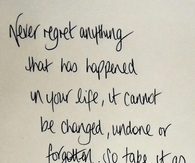 Never regret anything
that has happened
in your life, it cannot
be changed, undone or
forgotten. So take it as